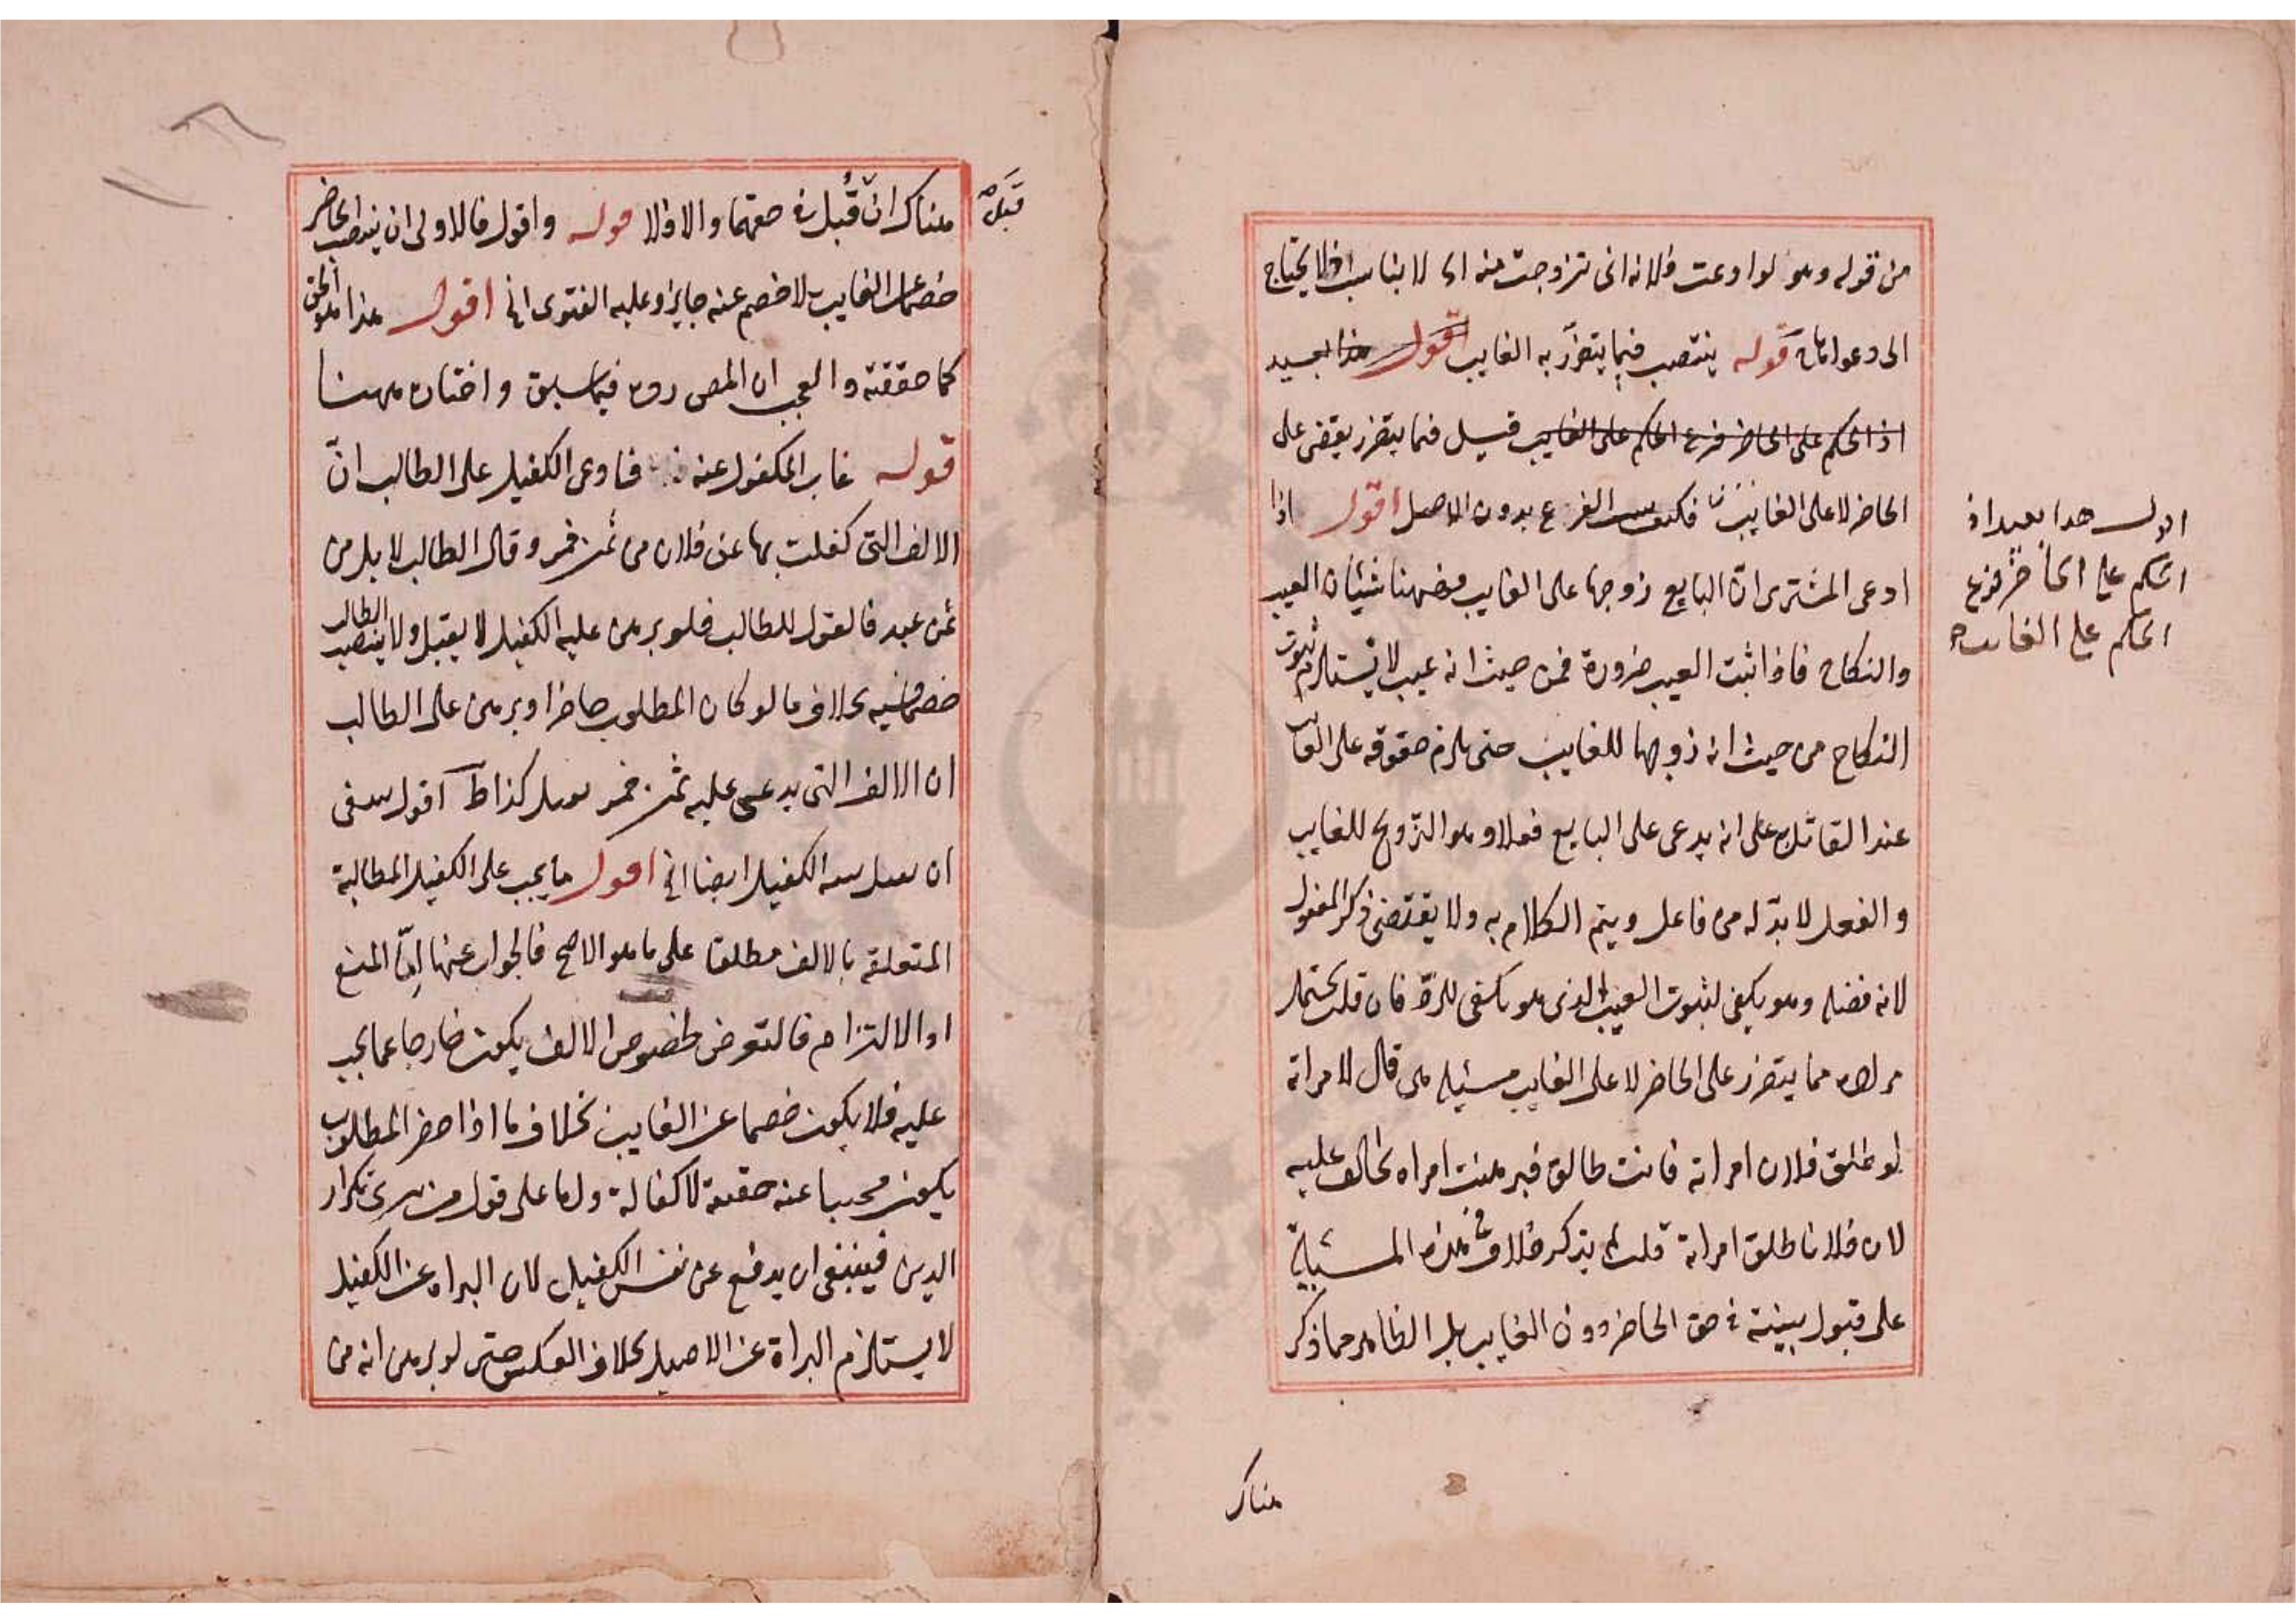 من قوله وهو لو ادعت فلانه انى تزوجت منه الا لا بناسب اذ لا يحتاج
الى دعواها قوله ينتصب فيما يتضرر به الغايب اقول هذا بعيد
اذ الحكم على الحاضر فرع الحكم على الغايب قيل فما يتضرر يقضى على
الحاضر لا على الغايب فكيف الفرع بدون الاصل اقول اذا
ادعى المشترى ان البايع زوجها على الغايب فههنا شيئان العيب
والنكاح فاذا ثبت العيب ضرورة فمن حيث انه عيب لا يستلزم ثبوت
النكاح من حيث انه زوجها للغايب حتى يلزم حقوقه على الغايب
عند القاضى على انه يدعى على البايع فعلا وهو التزويج للغايب
والفعل لا بد له من فاعل ويتم الكلام به ولا يقتضى ذكر المفعول
لانه فضله وهو يكفى لثبوت العيب الذى هو يكفى للرد فان قلت يحتمل
مما يتضرر على الحاضر لا على الغايب مسئله من قال لامراته
لو طلق فلان امراته فانت طالق فبرهنت امراه الحالف عليه
لان فلانا طلق امراته قلت لم يذكر خلاف فى هذه المسئلة
على قبول بينته فى حق الحاضر دون الغايب بل الظاهر مما ذكر
هناك
اقول هذا بعيد اذ
الحكم على الحاضر فرع
الحكم على الغايب
هناك ان قُبل فى حقهما والا فلا قوله واقول فالاولى ان ينصب الحاضر
خصما عن الغايب لا خصم عنه جايز وعليه الفتوى الخ اقول هذا هو الحق
كما حققته والعجب ان المص رده فيما سبق واختاره ههنا
قوله غاب المكفول عنه فادعى الكفيل على الطالب انّ
الالف التى كفلت بها عن فلان من ثمن خمر وقال الطالب لا بل من
ثمن عبد فالقول للطالب فلو برهن عليه الكفيل لا يقبل ولا ينتصب الطالب
خصما فيه بخلاف ما لو كان المطلوب حاضرا وبرهن على الطالب
ان الالف التى يدعى عليه ثمن خمر يقبل كذا ط اقول ينبغى
ان يقبل بينه الكفيل ايضا الخ اقول ما يجب على الكفيل المطالبة
المتعلقه بالالف مطلقا على ما هو الاصح فالجواب عنها امّا المنع
او الالتزام فالتعرض لخصوص الالف يكون خارجا عما يجب
عليه فلا يكون خصما عن الغايب بخلاف ما اذا حضر المطلوب
يكون مجيبا عنه حقيقة لا كفالة واما على قول من يرى تكرار
الدين فينبغى ان يدفع عن نفس الكفيل لان البراه عن الكفيل
لا يستلزم البراة عن الاصيل بخلاف العكس حتى لو برهن انه من
قبل